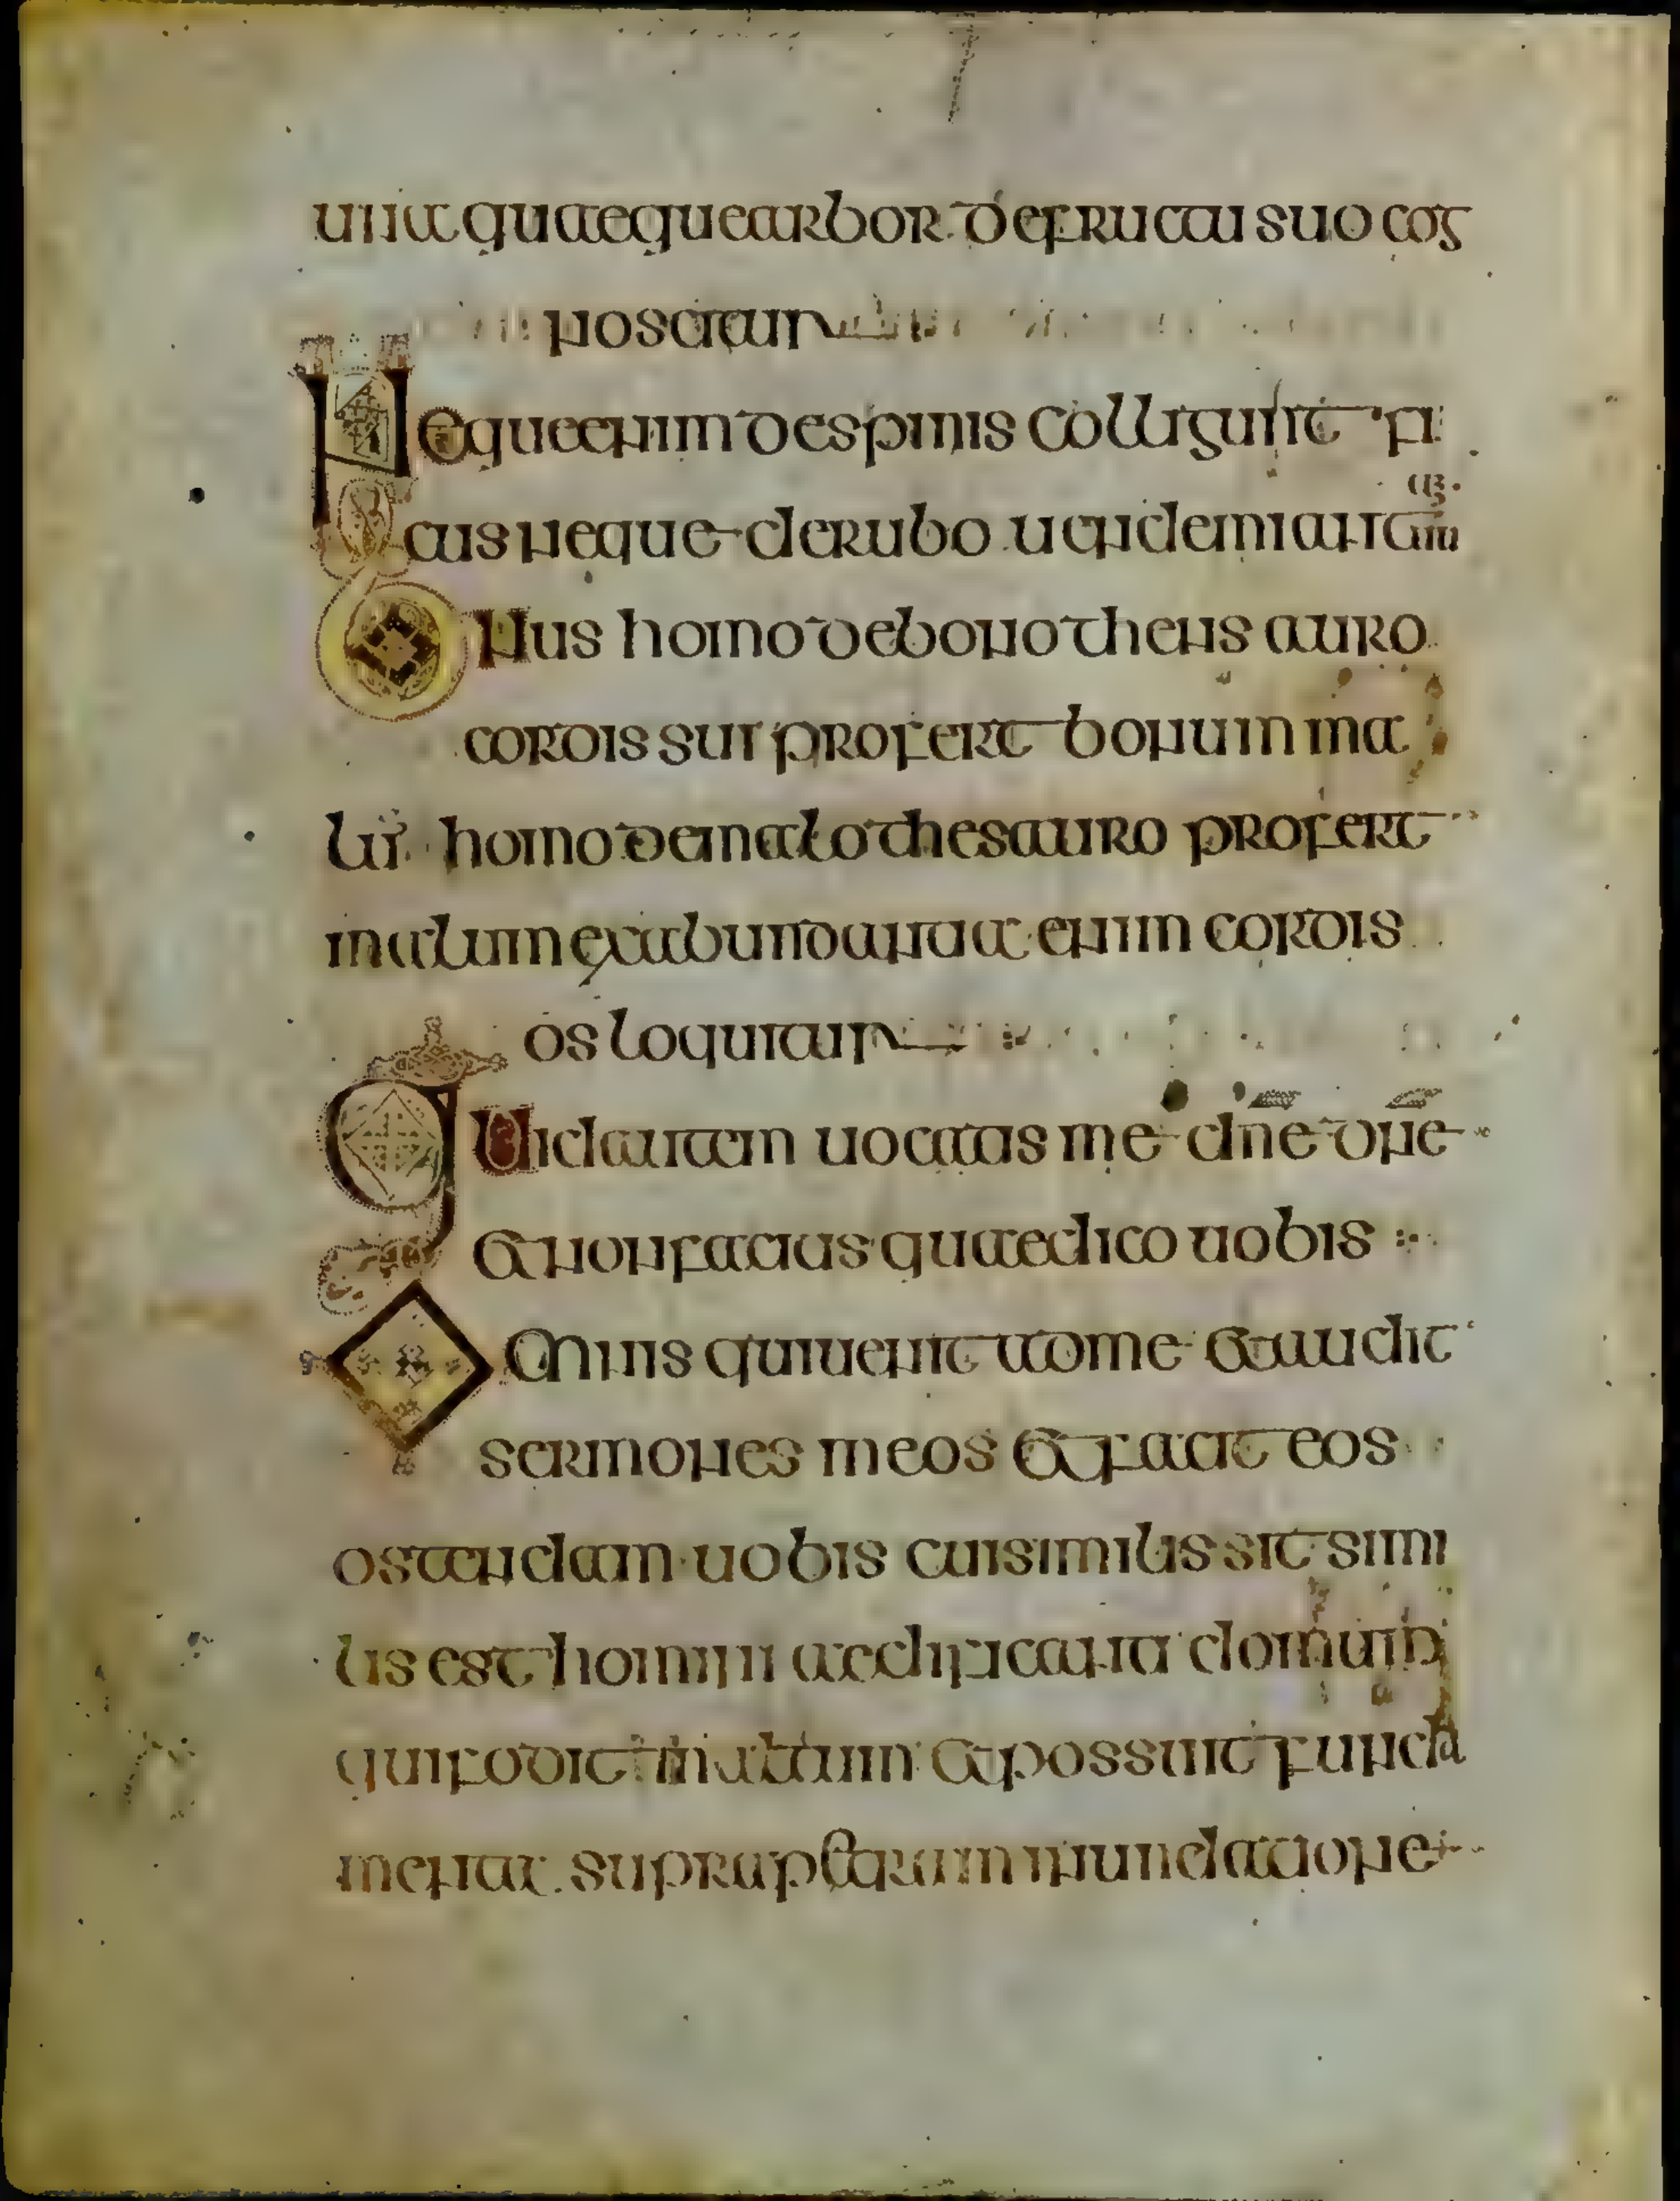 una quaeque arbor de fructu suo cog
noscitur
Neque enim de spinis colligunt fi
cus neque de rubo uendemiant
Bonus homo de bono thensauro
cordis sui profert bonum ma
lus homo de malo thesauro profert
malum ex abundantia enim cordis
os loquitur
Quid autem uocatis me dne dne
et non facitis quae dico uobis
Omnis qui uenit ad me et audit
sermones meos et facit eos
ostendam uobis cui similis sit simi
lis est homini aedificanti domum
qui fodit in altum et possuit funda
menta supra petram inundatione